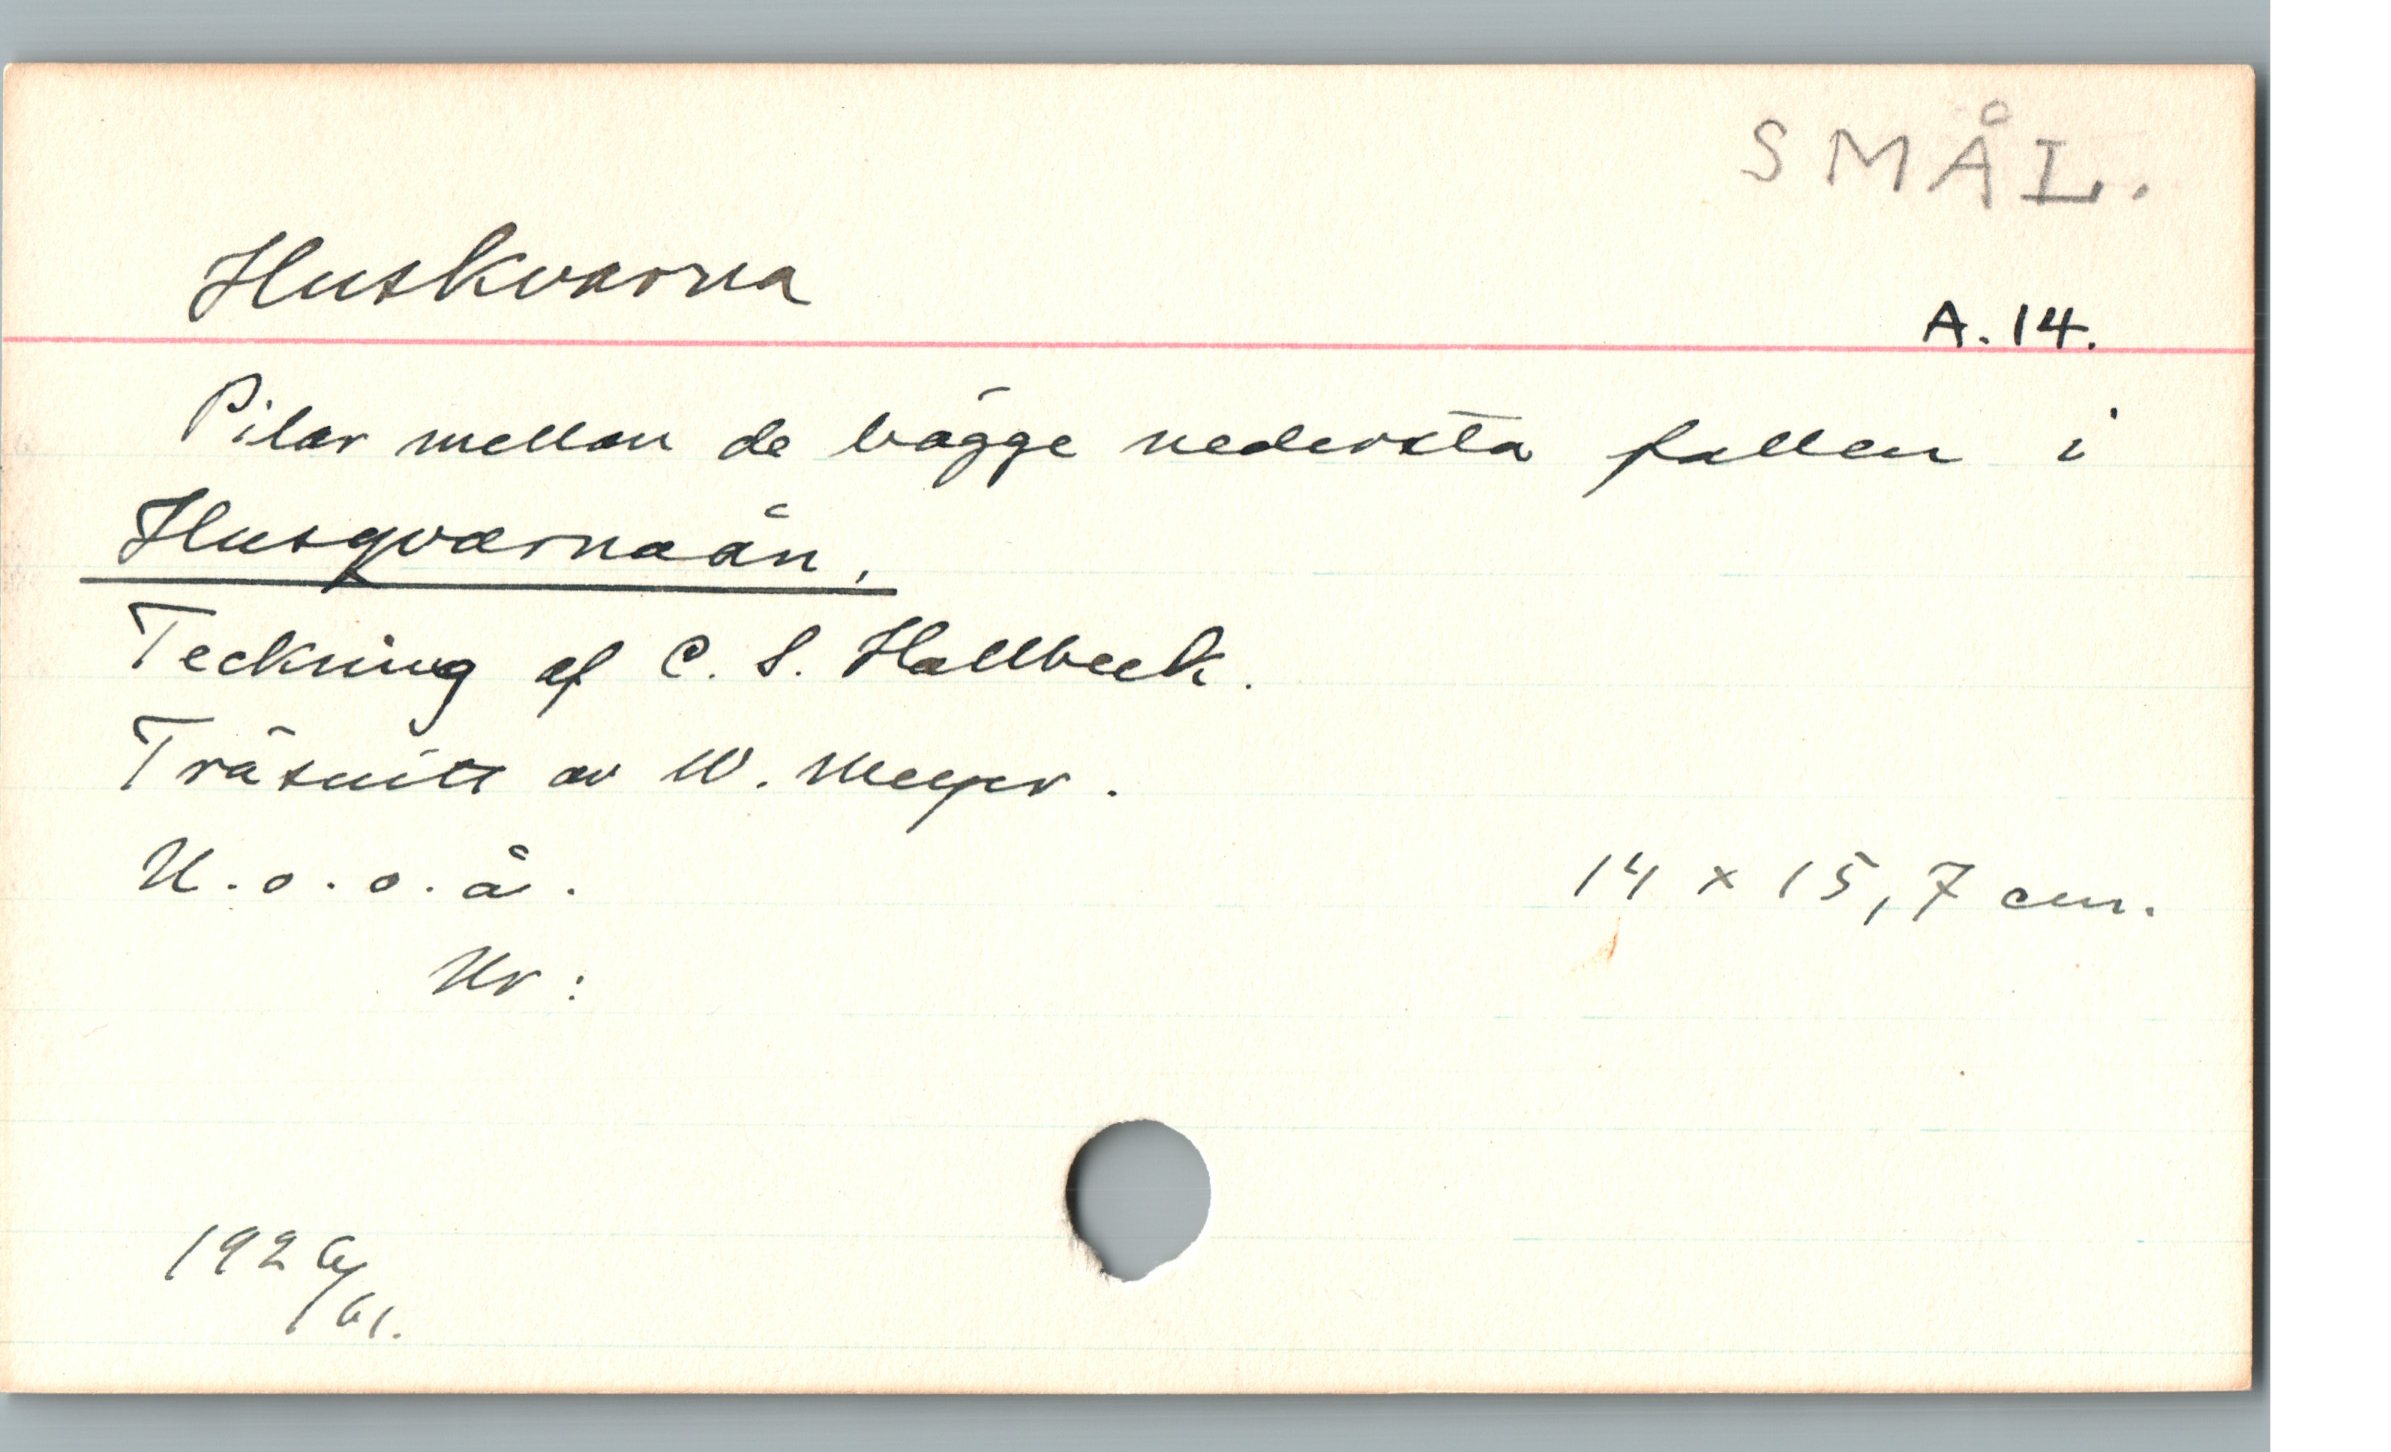 SMÅL.
Huskvarna
A. 14.
Pilar mellan de bägge nedersta fallen i
Husqvarnaån.
Teckning af C. S. Hallbeck.
Träsnitt av W. Meyer.
U. o. o. å.
14 x 15,7 cm.
Ur:
1926/61.